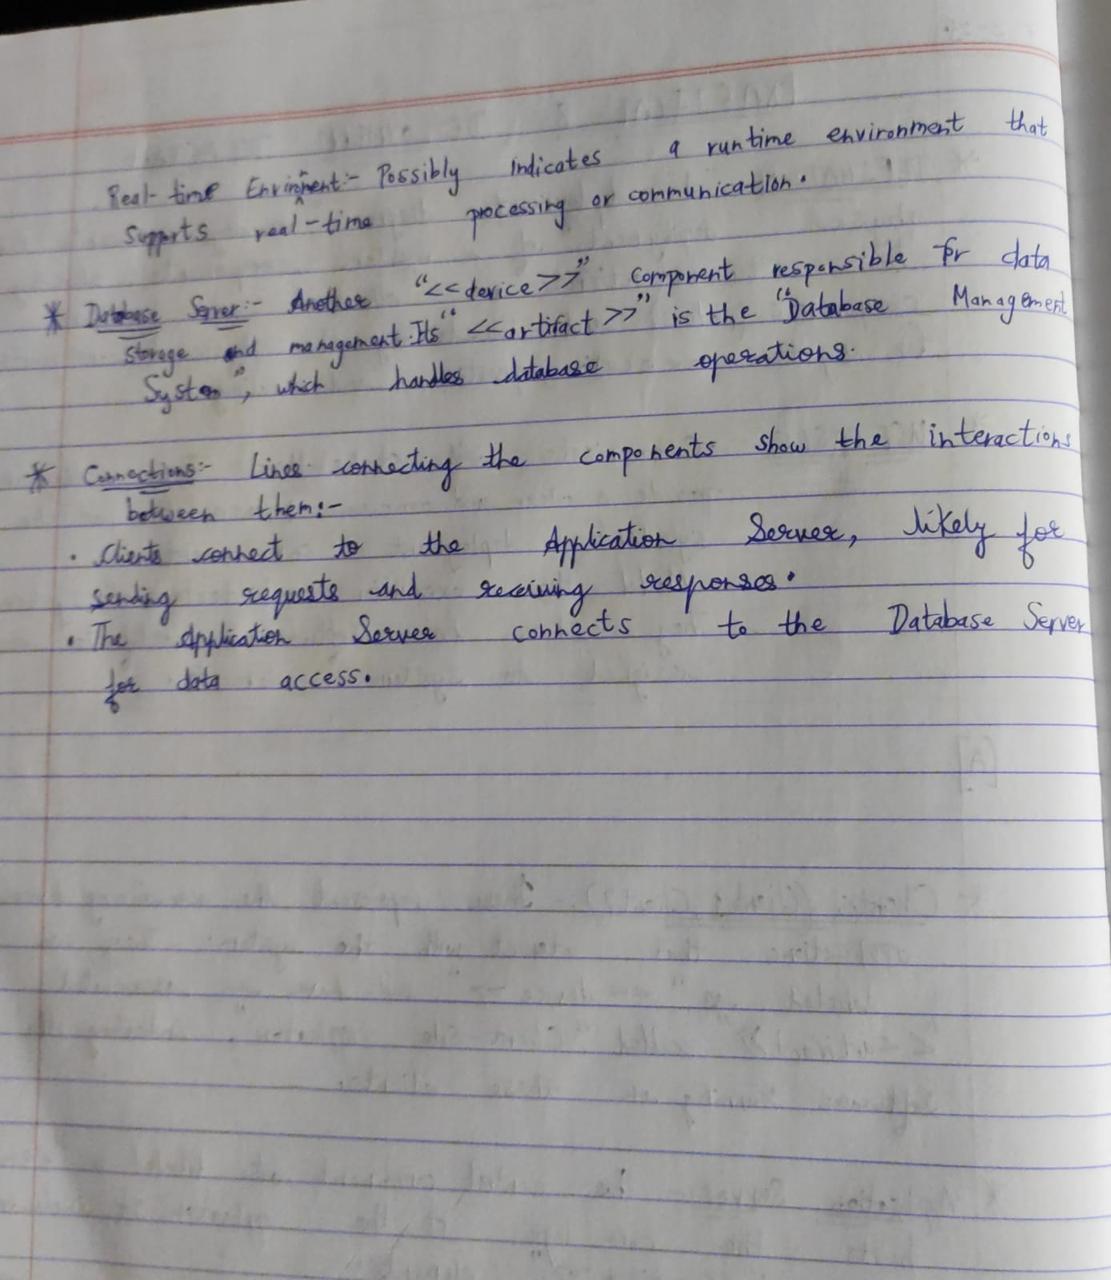 Real-time Envirnment:- Possibly indicates a runtime environment that
supports real-time processing or communication.
* Database Server:- Another "<<device>>" component responsible for data
storage and management. Its "<<artifact>>" is the "Database Management
System", which handles database operations.
* Connections:- Lines connecting the components show the interactions
between them:-
• Clients connect to the Application Server, likely for
sending requests and receiving responses.
• The Application Server connects to the Database Server
for data access.